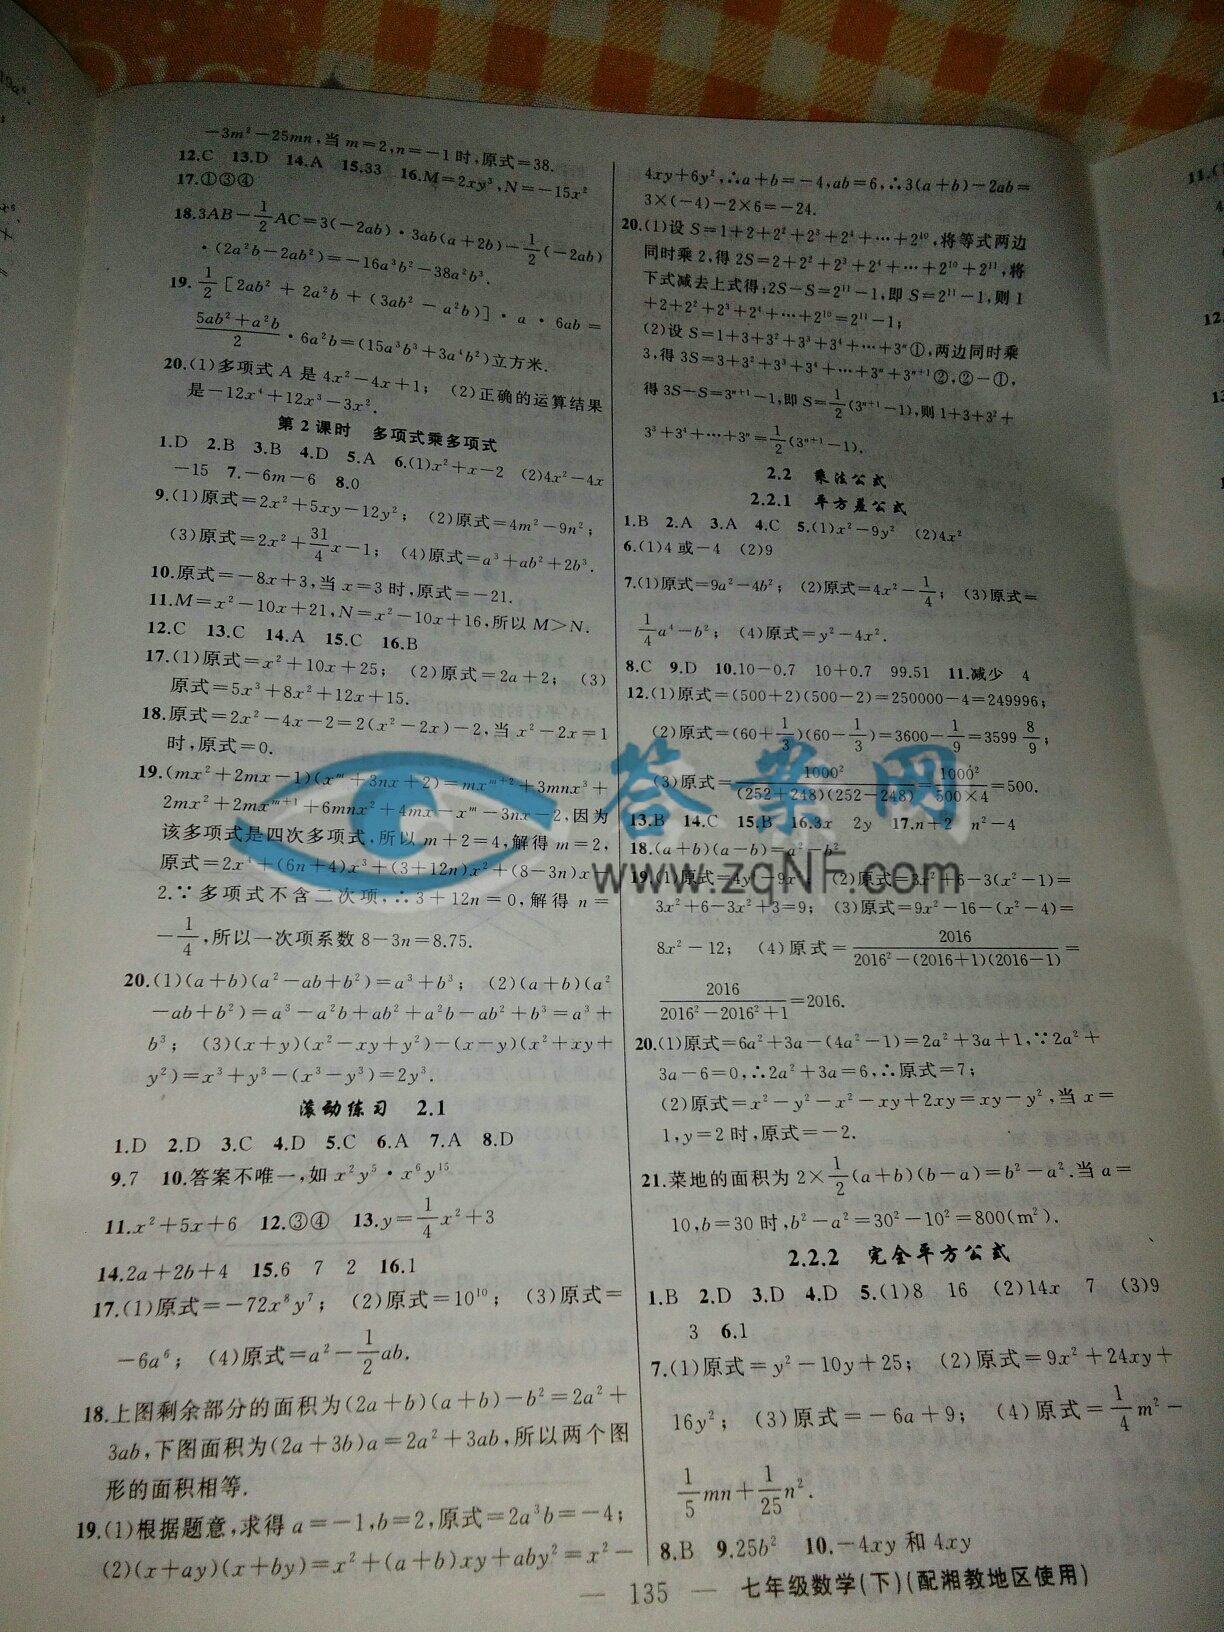 -3m²-25mn,当m=2,n=-1时,原式=38.
12.C 13.D 14.A 15.33 16.M=2xy³,N=-15x²
17.①③④
18.3AB-1/2AC=3(-2ab)·3ab(a+2b)-1/2(-2ab)
·(2a²b-2ab²)=-16a³b²-38a²b³.
19.1/2[2ab²+2a²b+(3ab²-a²b)]·a·6ab=
(5ab²+a²b)/2·6a²b=(15a³b³+3a⁴b²)立方米.
20.(1)多项式A是4x²-4x+1; (2)正确的运算结果
是-12x⁴+12x³-3x².
第2课时 多项式乘多项式
1.D 2.B 3.B 4.D 5.A 6.(1)x²+x-2 (2)4x²-4x
-15 7.-6m-6 8.0
9.(1)原式=2x²+5xy-12y²; (2)原式=4m²-9n²;
(3)原式=2x²+31/4x-1; (4)原式=a³+ab²+2b³.
10.原式=-8x+3,当x=3时,原式=-21.
11.M=x²-10x+21,N=x²-10x+16,所以M>N.
12.C 13.C 14.A 15.C 16.B
17.(1)原式=x²+10x+25; (2)原式=2a+2; (3)
原式=5x³+8x²+12x+15.
18.原式=2x²-4x-2=2(x²-2x)-2,当x²-2x=1
时,原式=0.
19.(mx²+2mx-1)(xᵐ+3nx+2)=mxᵐ⁺²+3mnx³+
2mx²+2mxᵐ⁺¹+6mnx²+4mx-xᵐ-3nx-2,因为
该多项式是四次多项式,所以m+2=4,解得m=2,
原式=2x⁴+(6n+4)x³+(3+12n)x²+(8-3n)x-
2.∵多项式不含二次项,∴3+12n=0,解得n=
-1/4,所以一次项系数8-3n=8.75.
20.(1)(a+b)(a²-ab+b²)=a³+b³; (2)(a+b)(a²
-ab+b²)=a³-a²b+ab²+a²b-ab²+b³=a³+
b³; (3)(x+y)(x²-xy+y²)-(x-y)(x²+xy+
y²)=x³+y³-(x³-y³)=2y³.
滚动练习 2.1
1.D 2.D 3.C 4.D 5.C 6.A 7.A 8.D
9.7 10.答案不唯一,如x²y⁵·x⁶y¹⁵
11.x²+5x+6 12.③④ 13.y=1/4x²+3
14.2a+2b+4 15.6 7 2 16.1
17.(1)原式=-72x⁸y⁷; (2)原式=10¹⁰; (3)原式=
-6a⁶; (4)原式=a²-1/2ab.
18.上图剩余部分的面积为(2a+b)(a+b)-b²=2a²+
3ab,下图面积为(2a+3b)a=2a²+3ab,所以两个图
形的面积相等.
19.(1)根据题意,求得a=-1,b=2,原式=2a³b=-4;
(2)(x+ay)(x+by)=x²+(a+b)xy+aby²=x²-
4xy+6y²,∴a+b=-4,ab=6,∴3(a+b)-2ab=
3×(-4)-2×6=-24.
20.(1)设S=1+2+2²+2³+2⁴+…+2¹⁰,将等式两边
同时乘2,得2S=2+2²+2³+2⁴+…+2¹⁰+2¹¹,将
下式减去上式得:2S-S=2¹¹-1,即S=2¹¹-1,则1
+2+2²+2³+2⁴+…+2¹⁰=2¹¹-1;
(2)设S=1+3+3²+3³+3⁴+…+3ⁿ①,两边同时乘
3,得3S=3+3²+3³+3⁴+…+3ⁿ+3ⁿ⁺¹②,②-①,
得3S-S=3ⁿ⁺¹-1,即S=1/2(3ⁿ⁺¹-1),则1+3+3²+
3³+3⁴+…+3ⁿ=1/2(3ⁿ⁺¹-1).
2.2 乘法公式
2.2.1 平方差公式
1.B 2.A 3.A 4.C 5.(1)x²-9y² (2)4x²
6.(1)4或-4 (2)9
7.(1)原式=9a²-4b²; (2)原式=4x²-1/4; (3)原式=
1/4a⁴-b²; (4)原式=y²-4x².
8.C 9.D 10.10-0.7 10+0.7 99.51 11.减少 4
12.(1)原式=(500+2)(500-2)=250000-4=249996;
(2)原式=(60+1/3)(60-1/3)=3600-1/9=3599 8/9;
(3)原式=1000²/(252+248)(252-248)=1000²/500×4=500.
13.B 14.C 15.B 16.3x 2y 17.n+2 n²-4
18.(a+b)(a-b)=a²-b²
19.(1)原式=4y²-9x²; (2)原式=3x²+6-3(x²-1)=
3x²+6-3x²+3=9; (3)原式=9x²-16-(x²-4)=
8x²-12; (4)原式=2016/2016²-(2016+1)(2016-1)=
2016/2016²-2016²+1=2016.
20.(1)原式=6a²+3a-(4a²-1)=2a²+3a+1,∵2a²+
3a-6=0,∴2a²+3a=6,∴原式=7;
(2)原式=x²-y²-x²-xy+2xy=xy-y²,当x=
1,y=2时,原式=-2.
21.菜地的面积为2×1/2(a+b)(b-a)=b²-a².当a=
10,b=30时,b²-a²=30²-10²=800(m²).
2.2.2 完全平方公式
1.B 2.D 3.D 4.D 5.(1)8 16 (2)14x 7 (3)9
3 6.1
7.(1)原式=y²-10y+25; (2)原式=9x²+24xy+
16y²; (3)原式=-6a+9; (4)原式=1/4m²-
1/5mn+1/25n².
8.B 9.25b² 10.-4xy和4xy
— 135 — 七年级数学(下)(配湘教地区使用)
答案网
www.zqNF.com